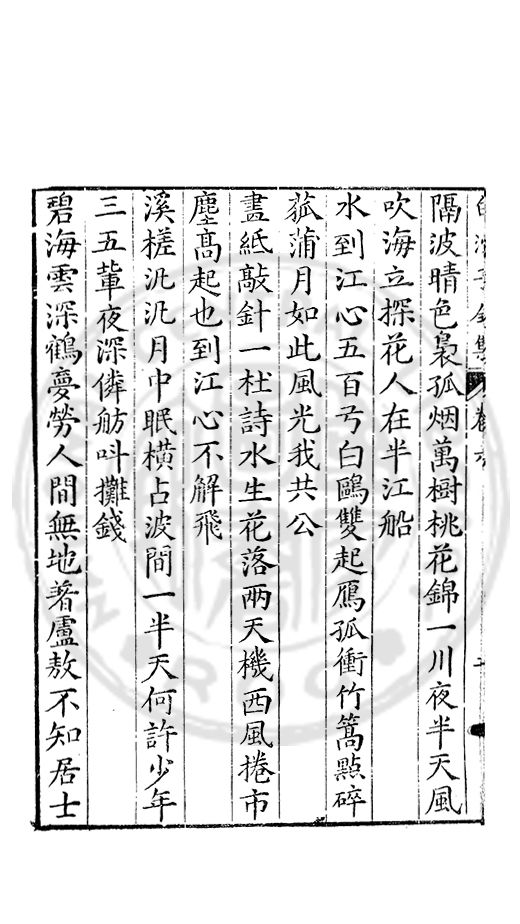 隔波晴色裊孤烟萬樹桃花錦一川夜半天風
吹海立探花人在半江船
水到江心五百弓白鷗雙起鴈孤衝竹篙點碎
菰蒲月如此風光我共公
畫紙敲針一杜詩水生花落兩天機西風捲市
塵高起也到江心不解飛
溪槎汎汎月中眠橫占波間一半天何許少年
三五輩夜深僯舫呌攤錢
碧海雲深鶴夢勞人間無地著盧敖不知居士